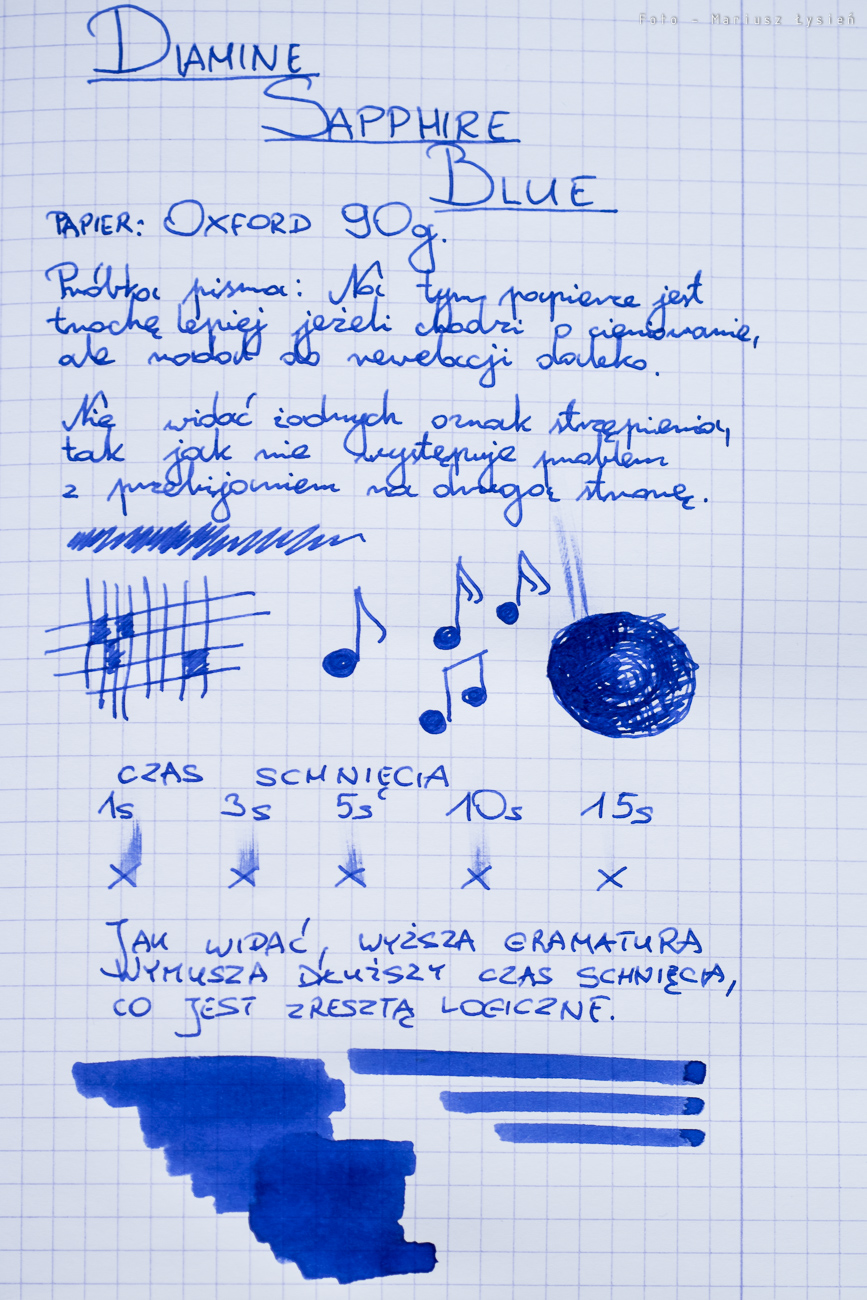 Foto - Mariusz Łysień
DIAMINE
SAPPHIRE
BLUE
PAPIER: OXFORD 90g.
Próbka pisma: Na tym papierze jest
trochę lepiej jeżeli chodzi o cieniowanie,
ale nadal do rewelacji daleko.
Nie widać żadnych oznak strzępienia,
tak jak nie występuje problem
z przebijaniem na drugą stronę.
CZAS SCHNIĘCIA
1s 3s 5s 10s 15s
JAK WIDAĆ, WYŻSZA GRAMATURA
WYMUSZA DŁUŻSZY CZAS SCHNIĘCIA,
CO JEST ZRESZTĄ LOGICZNE.